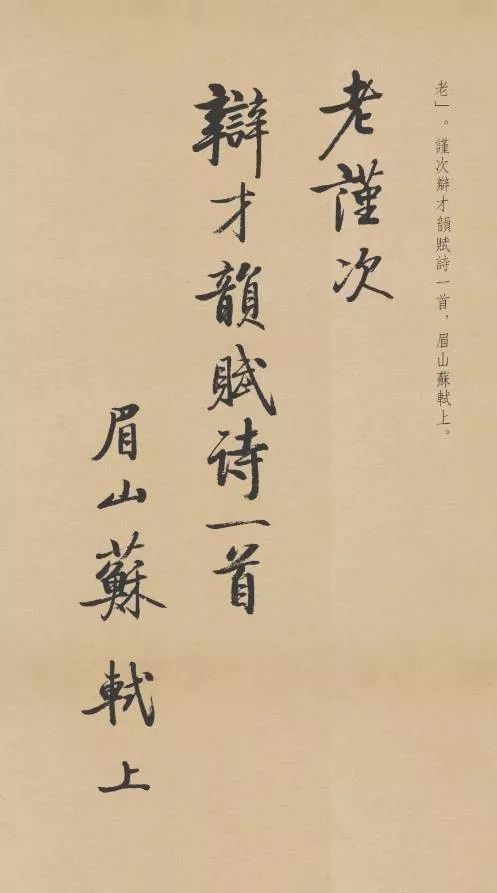 老」。謹次辯才韻賦詩一首，眉山蘇軾上。
老謹次
辯才韻賦诗一首
眉山蘇軾上